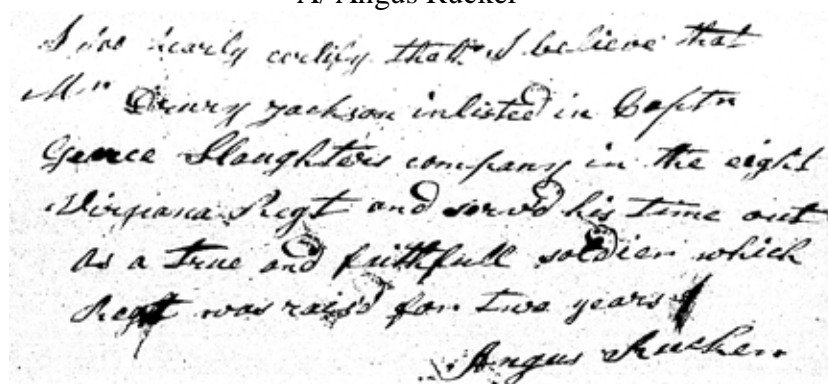 A/ Angus Rucker
I do hearly certify that I believe that
Mr Drury Jackson inlisted in Captn
George Slaughters company in the eight
Virginia Regt and servd his time out
as a true and faithfull soldier which
Regt was raisd for two years
Angus Rucker